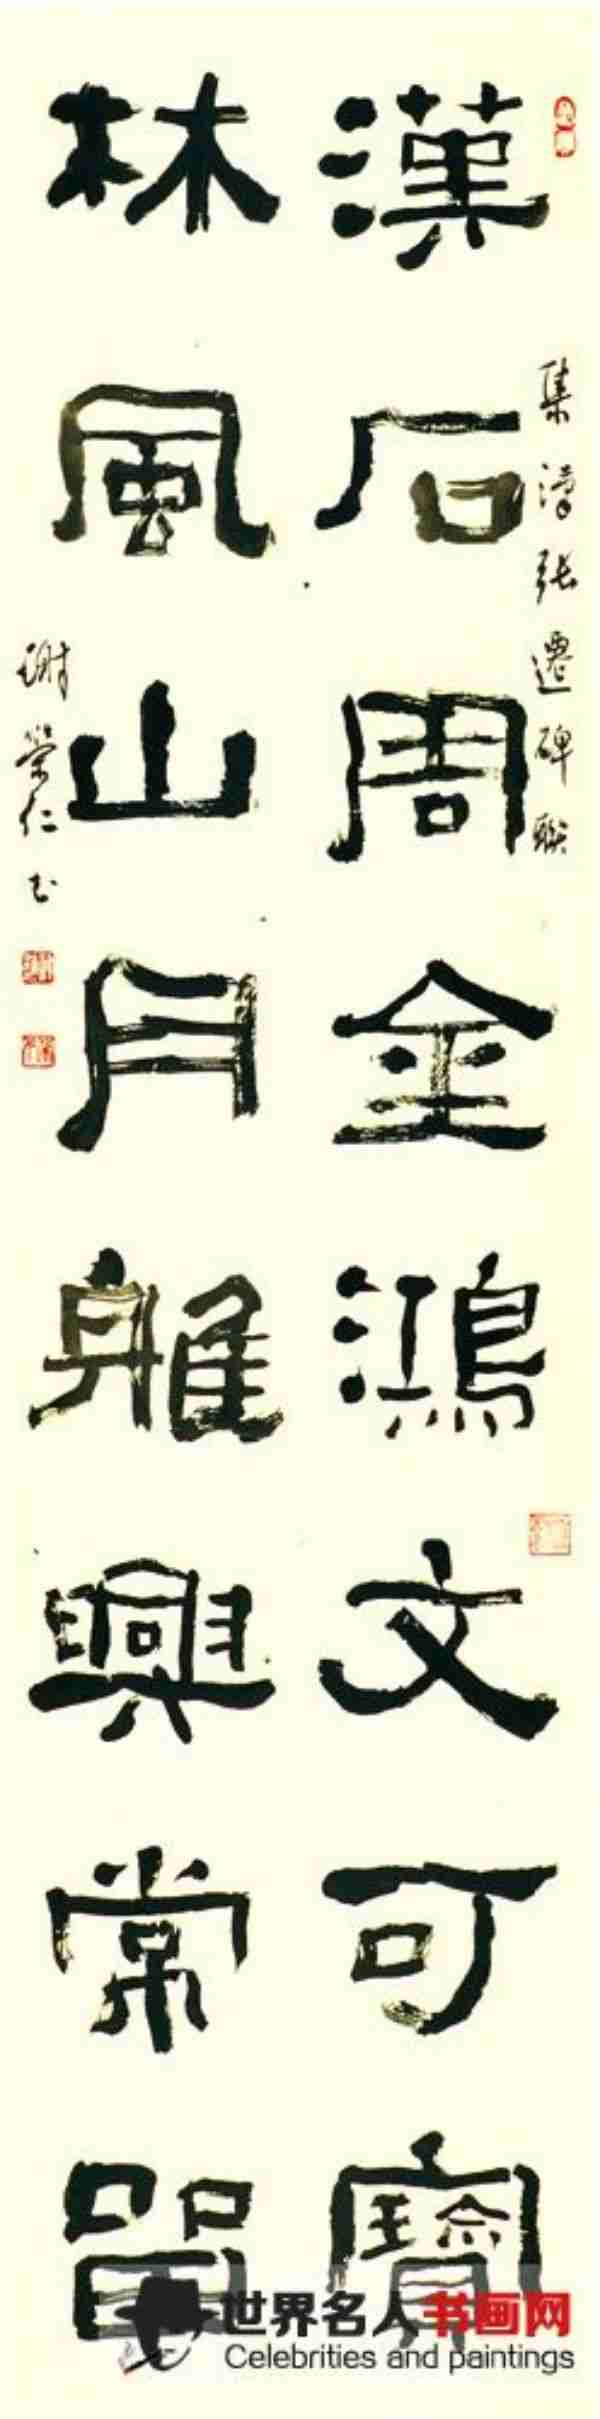 集漢張遷碑聯
漢石周金鴻文可寶
林風山月雅興常留
謝榮仁书
世界名人书画网
Celebrities and paintings